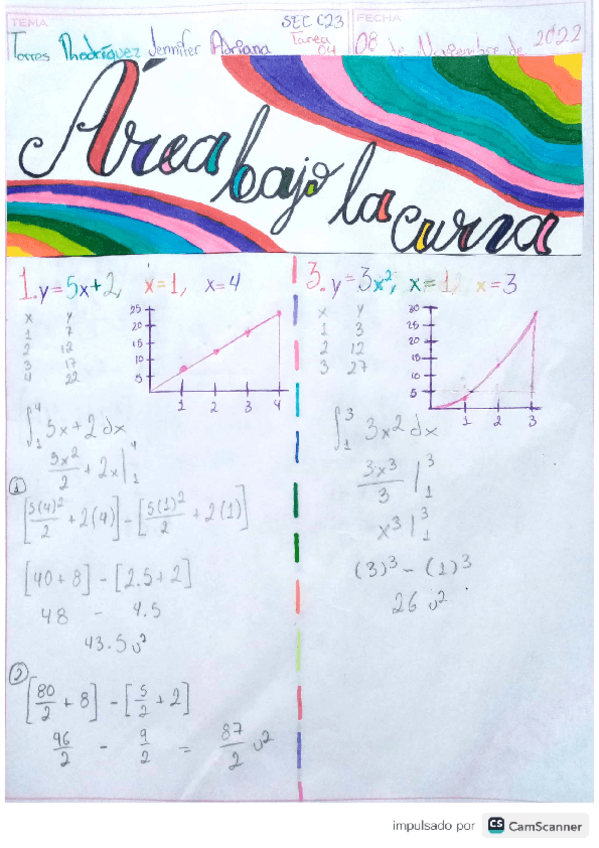 TEMA
SEC C23
FECHA
Torres Rhodríguez Jennifer Adriana
Tarea 04
08 de Noviembre de 2022
Área bajo la curva
1. y=5x+2, x=1, x=4
x y
1 7
2 12
3 17
4 22
25
20
15
10
5
1 2 3 4
∫₁⁴ 5x+2 dx
5x²/2 + 2x |₁⁴
①
[5(4)²/2 + 2(4)] - [5(1)²/2 + 2(1)]
[40+8] - [2.5+2]
48 - 4.5
43.5 u²
②
[80/2 + 8] - [5/2 + 2]
96/2 - 9/2 = 87/2 u²
3. y=3x², x=1, x=3
x y
1 3
2 12
3 27
30
25
20
15
10
5
1 2 3
∫₁³ 3x² dx
3x³/3 |₁³
x³ |₁³
(3)³ - (1)³
26 u²
impulsado por CS CamScanner